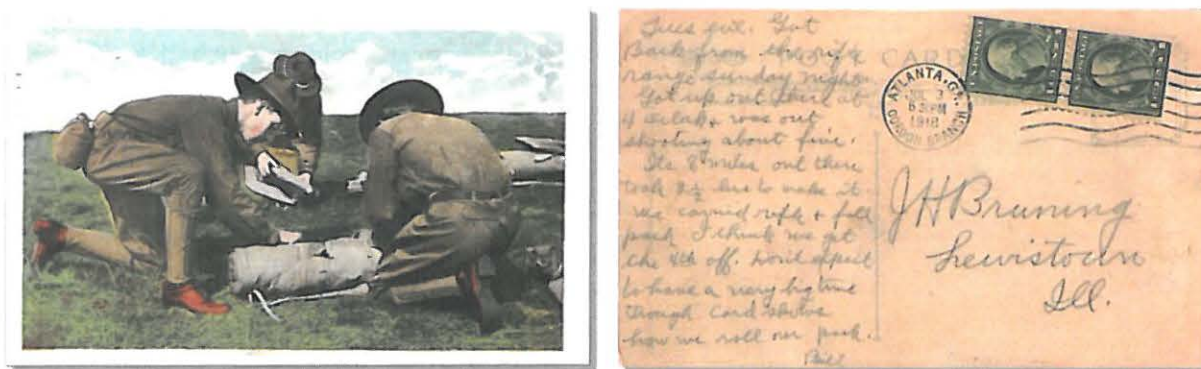 Tues eve. Got
Back from the rifle
range sunday night
Got up out there at
4 oclock, was out
shooting about five.
Its 8 miles out there
Took 2½ hrs to make it
We carried rifle + full
pack I think we get
the 4th off. Dont expect
to have a very big time
Though Card shows
how we roll our pack.
Bill
CARD
ATLANTA, GA.
JUL
PM
1918
GORDON BRANCH
JH Bruning
Lewistown
Ill.